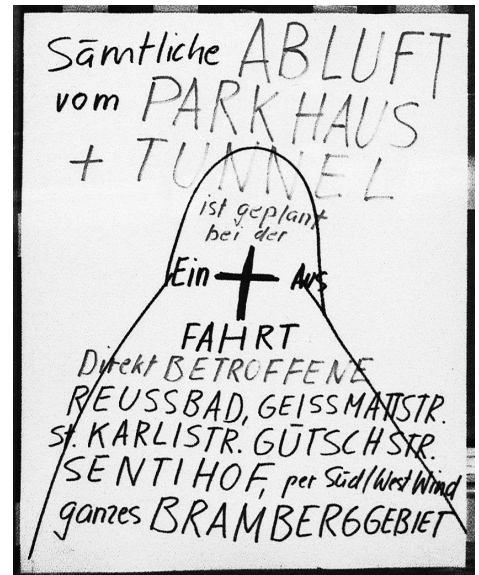 Sämtliche ABLUFT
vom PARKHAUS
+ TUNNEL
ist geplant
bei der
Ein + Aus
FAHRT
Direkt BETROFFENE
REUSSBAD, GEISSMATTSTR.
St. KARLISTR. GÜTSCHSTR.
SENTIHOF, per Süd/West Wind
ganzes BRAMBERGGEBIET